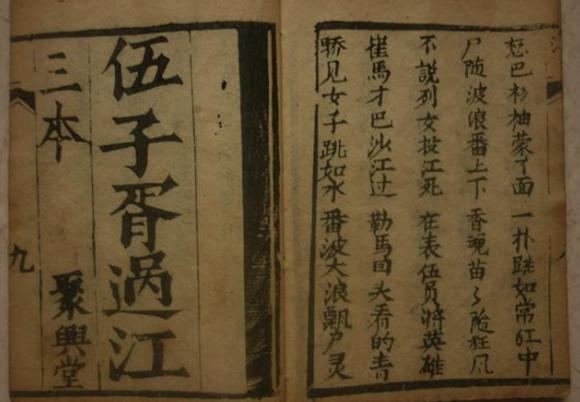 巴衫柚蒙了面 一扑跳如常江中
尸随波浪番上下 香魂苗〻随狂风
不說列女投江死 在表伍员将英雄
崔馬才巴沙江过 勒馬回头看的青
骄见女子跳如水 番波大浪飘尸灵
伍子胥過江
三本 聚興堂
九